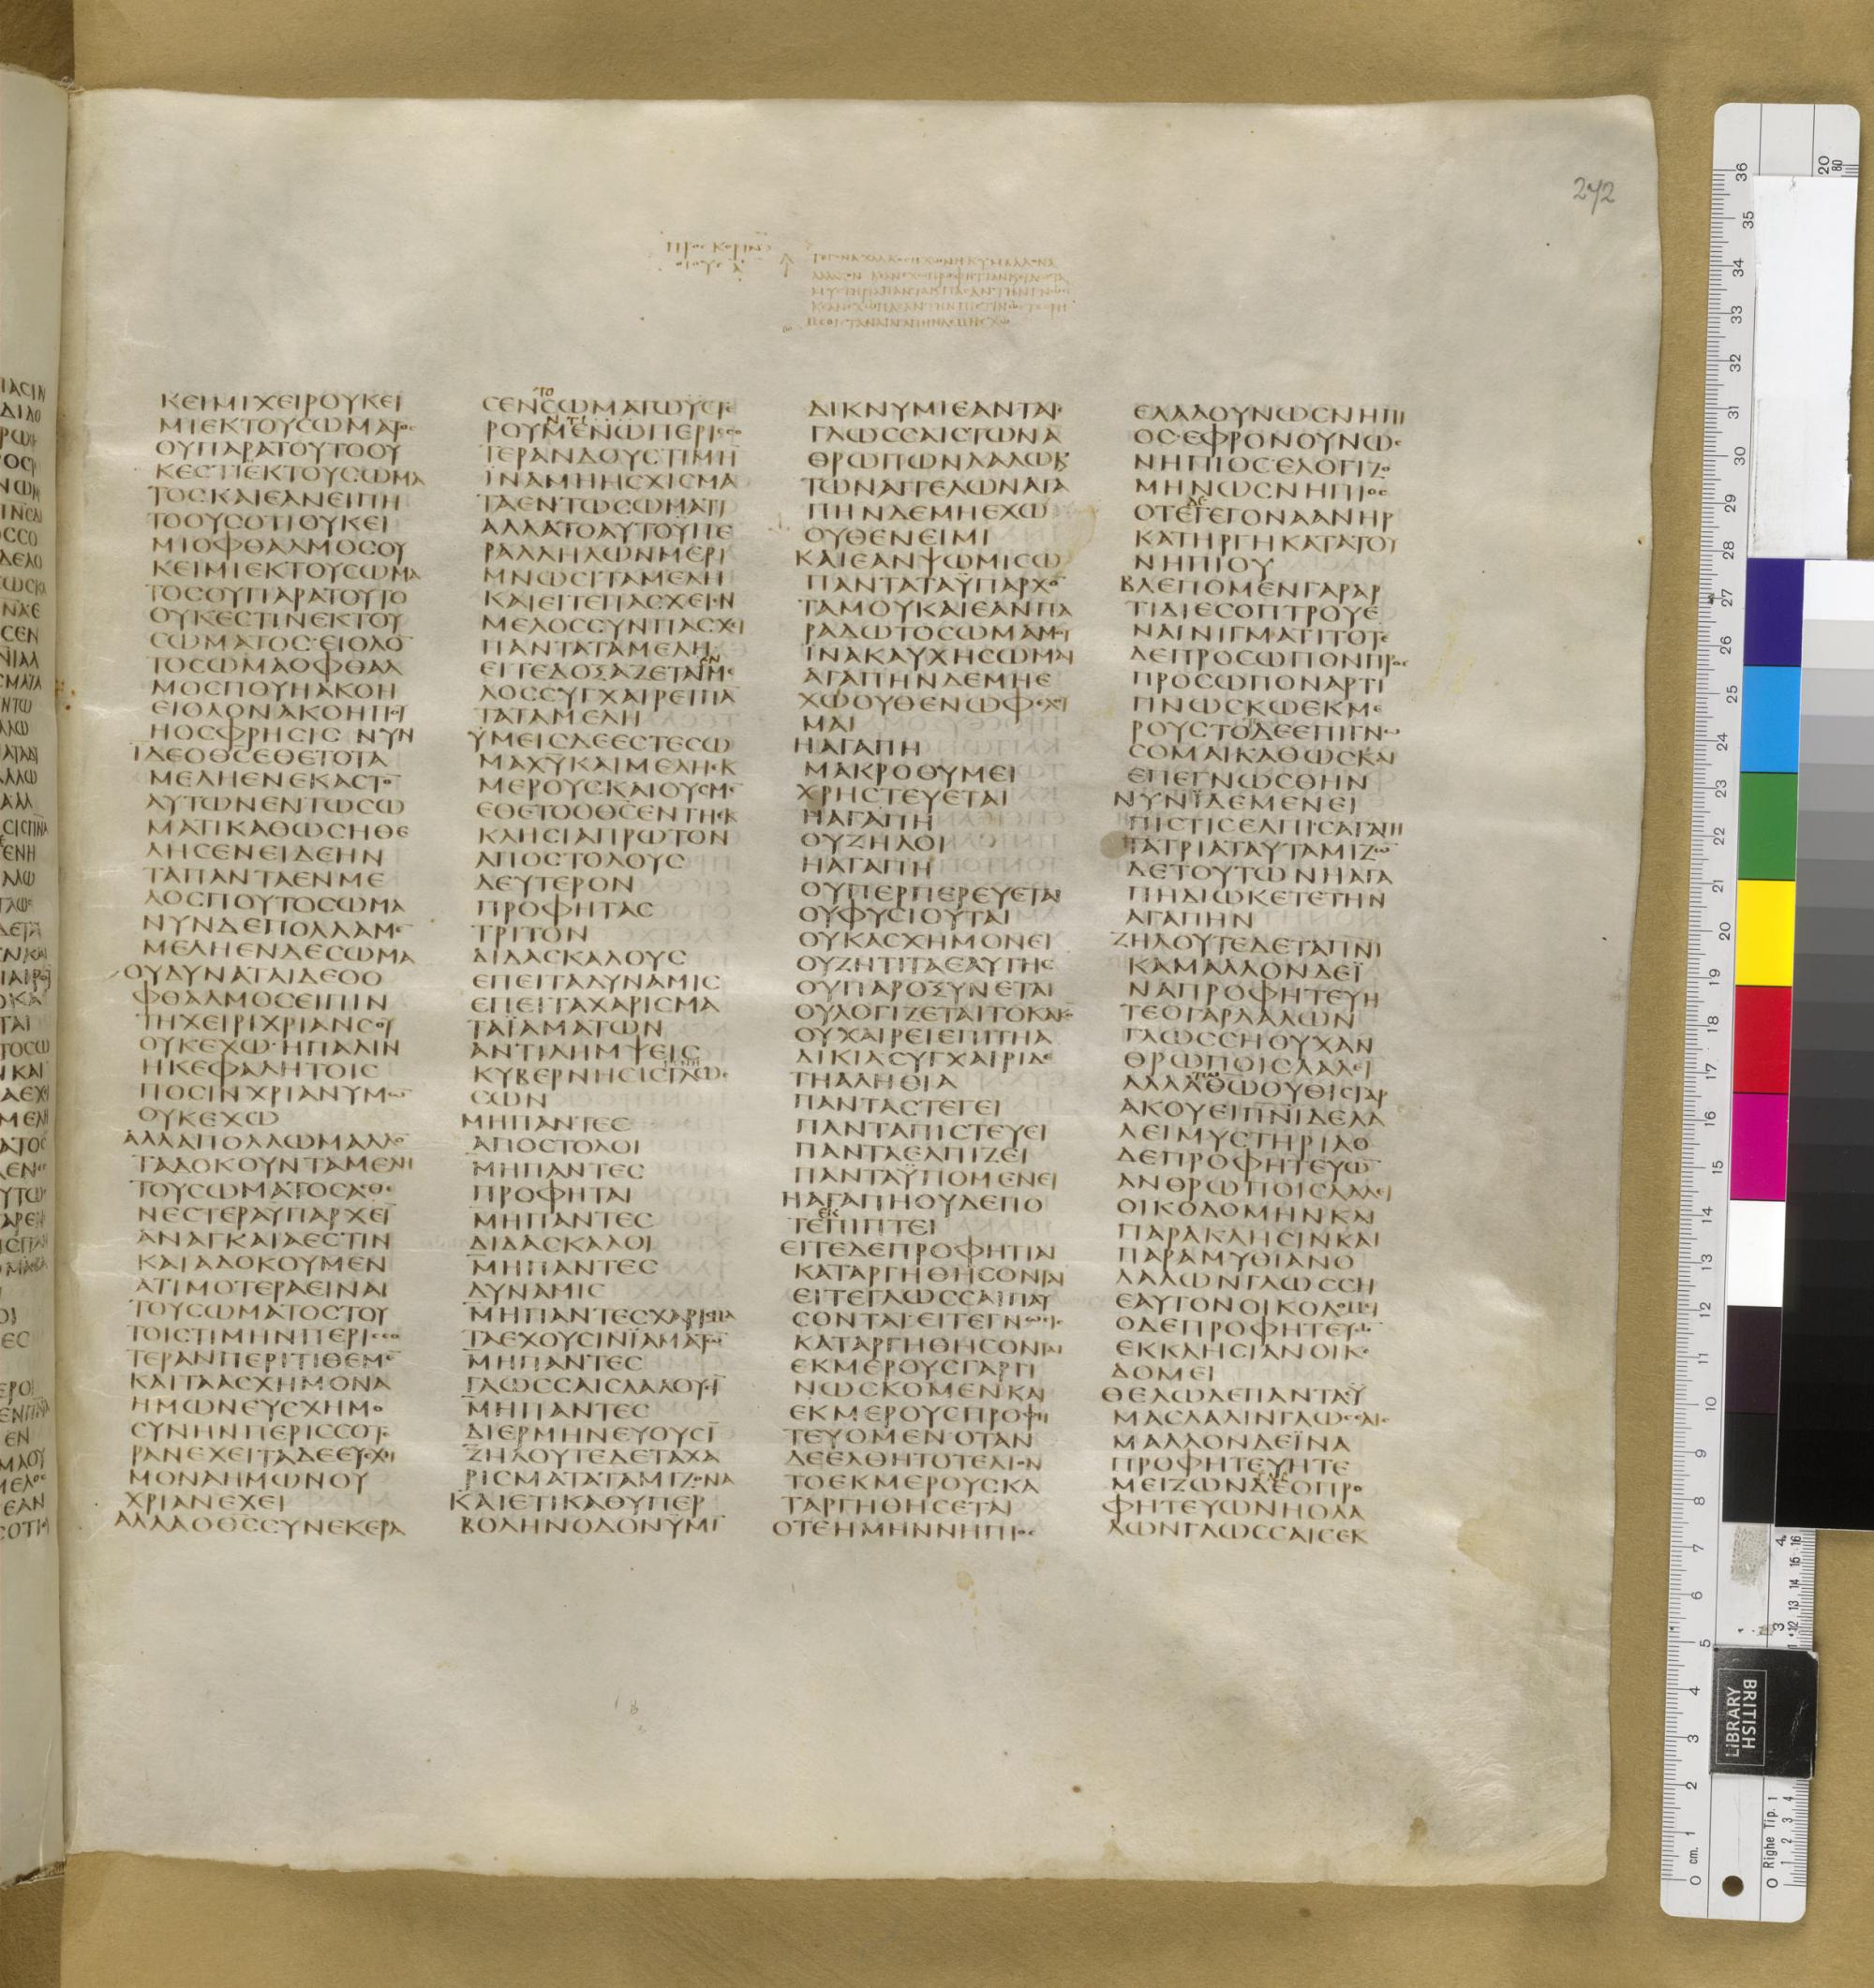 272
Προς Κοριν
ΚΕΙΜΙΧΕΙΡΟΥΚΕΙ
ΜΙΕΚΤΟΥΣΩΜΑΤΟΣ
ΟΥΠΑΡΑΤΟΥΤΟΟΥ
ΚΕΣΤΙΕΚΤΟΥΣΩΜΑ
ΤΟΣΚΑΙΕΑΝΕΙΠΗ
ΤΟΟΥΣΟΤΙΟΥΚΕΙ
ΜΙΟΦΘΑΛΜΟΣΟΥ
ΚΕΙΜΙΕΚΤΟΥΣΩΜΑ
ΤΟΣΟΥΠΑΡΑΤΟΥΤΟ
ΟΥΚΕΣΤΙΝΕΚΤΟΥ
ΣΩΜΑΤΟΣ·ΕΙΟΛΟ̄
ΤΟΣΩΜΑΟΦΘΑΛ
ΜΟΣΠΟΥΗΑΚΟΗ
ΕΙΟΛΟΝΑΚΟΗΠΟΥ
ΗΟΣΦΡΗΣΙΣ ΝΥΝ
ΙΔΕΟΘ̄Σ̄ΕΘΕΤΟΤΑ
ΜΕΛΗΕΝΕΚΑΣΤΟ̄
ΑΥΤΩΝΕΝΤΩΣΩ
ΜΑΤΙΚΑΘΩΣΗΘΕ
ΛΗΣΕΝΕΙΔΕΗΝ
ΤΑΠΑΝΤΑΕΝΜΕ
ΛΟΣΠΟΥΤΟΣΩΜΑ
ΝΥΝΔΕΠΟΛΛΑΜΕ̄
ΜΕΛΗΕΝΔΕΣΩΜΑ
ΟΥΔΥΝΑΤΑΙΔΕΟΟ
ΦΘΑΛΜΟΣΕΙΠΙΝ
ΤΗΧΕΙΡΙΧΡΙΑΝΣΟΥ
ΟΥΚΕΧΩ·ΗΠΑΛΙΝ
ΗΚΕΦΑΛΗΤΟΙΣ
ΠΟΣΙΝΧΡΙΑΝΥΜΩ̄
ΟΥΚΕΧΩ
ΑΛΛΑΠΟΛΛΩΜΑΛΛΟ̄
ΤΑΔΟΚΟΥΝΤΑΜΕΛΗ
ΤΟΥΣΩΜΑΤΟΣΑΣΘΕ
ΝΕΣΤΕΡΑΥΠΑΡΧΕῙ
ΑΝΑΓΚΑΙΑΕΣΤΙΝ
ΚΑΙΑΔΟΚΟΥΜΕΝ
ΑΤΙΜΟΤΕΡΑΕΙΝΑΙ
ΤΟΥΣΩΜΑΤΟΣΤΟΥ
ΤΟΙΣΤΙΜΗΝΠΕΡΙΣΣΟ
ΤΕΡΑΝΠΕΡΙΤΙΘΕΜΕ̄
ΚΑΙΤΑΑΣΧΗΜΟΝΑ
ΗΜΩΝΕΥΣΧΗΜΟ
ΣΥΝΗΝΠΕΡΙΣΣΟΤΕ
ΡΑΝΕΧΕΙΤΑΔΕΕΥΣΧΗ
ΜΟΝΑΗΜΩΝΟΥ
ΧΡΙΑΝΕΧΕΙ
ΑΛΛΑΟΘ̄Σ̄ΣΥΝΕΚΕΡΑ
ΣΕΝΣΩΜΑΤΩΥΣΤΕ
ΡΟΥΜΕΝΩΠΕΡΙΣΣΟ
ΤΕΡΑΝΔΟΥΣΤΙΜΗ
ΪΝΑΜΗΗΣΧΙΣΜΑ
ΤΑΕΝΤΩΣΩΜΑΤΙ
ΑΛΛΑΤΟΑΥΤΟΥΠΕ
ΡΑΛΛΗΛΩΝΜΕΡΙ
ΜΝΩΣΙΤΑΜΕΛΗ
ΚΑΙΕΙΤΕΠΑΣΧΕΙΕΝ
ΜΕΛΟΣΣΥΝΠΑΣΧΕΙ
ΠΑΝΤΑΤΑΜΕΛΗ
ΕΙΤΕΔΟΞΑΖΕΤΑΙΜΕ
ΛΟΣΣΥΓΧΑΙΡΕΙΠᾹ
ΤΑΤΑΜΕΛΗ
ΥΜΕΙΣΔΕΕΣΤΕΣΩ
ΜΑΧΥΚΑΙΜΕΛΗΕΚ
ΜΕΡΟΥΣΚΑΙΟΥΣΜΕ̄
ΕΘΕΤΟΟΘ̄Σ̄ΕΝΤΗΕΚ
ΚΛΗΣΙΑΠΡΩΤΟΝ
ΑΠΟΣΤΟΛΟΥΣ
ΔΕΥΤΕΡΟΝ
ΠΡΟΦΗΤΑΣ
ΤΡΙΤΟΝ
ΔΙΔΑΣΚΑΛΟΥΣ
ΕΠΕΙΤΑΔΥΝΑΜΙΣ
ΕΠΕΙΤΑΧΑΡΙΣΜΑ
ΤΑΪΑΜΑΤΩΝ
ΑΝΤΙΛΗΜΨΕΙΣ
ΚΥΒΕΡΝΗΣΙΣΓΛΩΣ
ΣΩΝ
ΜΗΠΑΝΤΕΣ
ΑΠΟΣΤΟΛΟΙ
ΜΗΠΑΝΤΕΣ
ΠΡΟΦΗΤΑΙ
ΜΗΠΑΝΤΕΣ
ΔΙΔΑΣΚΑΛΟΙ
ΜΗΠΑΝΤΕΣ
ΔΥΝΑΜΙΣ
ΜΗΠΑΝΤΕΣΧΑΡΙΣΜΑ
ΤΑΕΧΟΥΣΙΝΪΑΜΑΤΩ̄
ΜΗΠΑΝΤΕΣ
ΓΛΩΣΣΑΙΣΛΑΛΟΥΣῙ
ΜΗΠΑΝΤΕΣ
ΔΙΕΡΜΗΝΕΥΟΥΣῙ
ΖΗΛΟΥΤΕΔΕΤΑΧΑ
ΡΙΣΜΑΤΑΤΑΜΙΖΟΝΑ
ΚΑΙΕΤΙΚΑΘΥΠΕΡ
ΒΟΛΗΝΟΔΟΝΫΜῙ
ΔΙΚΝΥΜΙΕΑΝΤΑΙΣ
ΓΛΩΣΣΑΙΣΤΩΝΑ
ΘΡΩΠΩΝΛΑΛΩΚ
ΤΩΝΑΓΓΕΛΩΝΑΓΑ
ΠΗΝΔΕΜΗΕΧΩ
ΟΥΘΕΝΕΙΜΙ
ΚΑΙΕΑΝΨΩΜΙΣΩ
ΠΑΝΤΑΤΑΫΠΑΡΧΟ̄
ΤΑΜΟΥΚΑΙΕΑΝΠΑ
ΡΑΔΩΤΟΣΩΜΑΜΟΥ
ΪΝΑΚΑΥΧΗΣΩΜΑΙ
ΑΓΑΠΗΝΔΕΜΗΕ
ΧΩΟΥΘΕΝΩΦΕΛΟΥ
ΜΑΙ
ΗΑΓΑΠΗ
ΜΑΚΡΟΘΥΜΕΙ
ΧΡΗΣΤΕΥΕΤΑΙ
ΗΑΓΑΠΗ
ΟΥΖΗΛΟΙ
ΗΑΓΑΠΗ
ΟΥΠΕΡΠΕΡΕΥΕΤΑΙ
ΟΥΦΥΣΙΟΥΤΑΙ
ΟΥΚΑΣΧΗΜΟΝΕΙ
ΟΥΖΗΤΙΤΑΕΑΥΤΗΣ
ΟΥΠΑΡΟΞΥΝΕΤΑΙ
ΟΥΛΟΓΙΖΕΤΑΙΤΟΚΑΚΟ̄
ΟΥΧΑΙΡΕΙΕΠΙΤΗΑ
ΔΙΚΙΑΣΥΓΧΑΙΡΙΔΕ
ΤΗΑΛΗΘΙΑ
ΠΑΝΤΑΣΤΕΓΕΙ
ΠΑΝΤΑΠΙΣΤΕΥΕΙ
ΠΑΝΤΑΕΛΠΙΖΕΙ
ΠΑΝΤΑΫΠΟΜΕΝΕΙ
ΗΑΓΑΠΗΟΥΔΕΠΟ
ΤΕΠΙΠΤΕΙ
ΕΙΤΕΔΕΠΡΟΦΗΤΙΑΙ
ΚΑΤΑΡΓΗΘΗΣΟΝΤΑΙ
ΕΙΤΕΓΛΩΣΣΑΙΠΑΥ
ΣΟΝΤΑΙ·ΕΙΤΕΓΝΩΣΙΣ
ΚΑΤΑΡΓΗΘΗΣΟΝΤΑΙ
ΕΚΜΕΡΟΥΣΓΑΡΓΙ
ΝΩΣΚΟΜΕΝΚΑΙ
ΕΚΜΕΡΟΥΣΠΡΟΦΗ
ΤΕΥΟΜΕΝ·ΟΤΑΝ
ΔΕΕΛΘΗΤΟΤΕΛΙΟΝ
ΤΟΕΚΜΕΡΟΥΣΚΑ
ΤΑΡΓΗΘΗΣΕΤΑΙ
ΟΤΕΗΜΗΝΝΗΠΙΟΣ
ΕΛΑΛΟΥΝΩΣΝΗΠΙ
ΟΣ·ΕΦΡΟΝΟΥΝΩΣ
ΝΗΠΙΟΣ·ΕΛΟΓΙΖΟ
ΜΗΝΩΣΝΗΠΙΟΣ
ΟΤΕΓΕΓΟΝΑΑΝΗΡ
ΚΑΤΗΡΓΗΚΑΤΑΤΟΥ
ΝΗΠΙΟΥ
ΒΛΕΠΟΜΕΝΓΑΡΑΡ
ΤΙΔΙΕΣΟΠΤΡΟΥΕ
ΝΑΙΝΙΓΜΑΤΙΤΟΤΕ
ΔΕΠΡΟΣΩΠΟΝΠΡΟΣ
ΠΡΟΣΩΠΟΝΑΡΤΙ
ΓΙΝΩΣΚΩΕΚΜΕ
ΡΟΥΣΤΟΔΕΕΠΙΓΝΩ
ΣΟΜΑΙΚΑΘΩΣΚΑΙ
ΕΠΕΓΝΩΣΘΗΝ
ΝΥΝΪΔΕΜΕΝΕΙ
ΠΙΣΤΙΣΕΛΠΙΣΑΓΑΠΗ
ΤΑΤΡΙΑΤΑΥΤΑΜΙΖΩ̄
ΔΕΤΟΥΤΩΝΗΑΓΑ
ΠΗΔΙΩΚΕΤΕΤΗΝ
ΑΓΑΠΗΝ
ΖΗΛΟΥΤΕΔΕΤΑΠΝΙ
ΚΑΜΑΛΛΟΝΔΕΪ
ΝΑΠΡΟΦΗΤΕΥΗ
ΤΕΟΓΑΡΛΑΛΩΝ
ΓΛΩΣΣΗΟΥΧΑΝ
ΘΡΩΠΟΙΣΛΑΛΕΙ
ΑΛΛΑΘ̄Ω̄ΟΥΘΙΣΓΑΡ
ΑΚΟΥΕΙΠΝ̄Ῑ·ΔΕΛΑ
ΛΕΙΜΥΣΤΗΡΙΑΟ
ΔΕΠΡΟΦΗΤΕΥΩ̄
ΑΝΘΡΩΠΟΙΣΛΑΛΕΙ
ΟΙΚΟΔΟΜΗΝΚΑΙ
ΠΑΡΑΚΛΗΣΙΝΚΑΙ
ΠΑΡΑΜΥΘΙΑΝΟ
ΛΑΛΩΝΓΛΩΣΣΗ
ΕΑΥΤΟΝΟΙΚΟΔΟΜΕΙ
ΟΔΕΠΡΟΦΗΤΕΥΩ̄
ΕΚΚΛΗΣΙΑΝΟΙΚΟ
ΔΟΜΕΙ
ΘΕΛΩΔΕΠΑΝΤΑΣΫ
ΜΑΣΛΑΛΙΝΓΛΩΣΣΑΙΣ
ΜΑΛΛΟΝΔΕΪΝΑ
ΠΡΟΦΗΤΕΥΗΤΕ
ΜΕΙΖΩΝΔΕΟΠΡΟ
ΦΗΤΕΥΩΝΗΟΛΑ
ΛΩΝΓΛΩΣΣΑΙΣΕΚ
BRITISH
LIBRARY